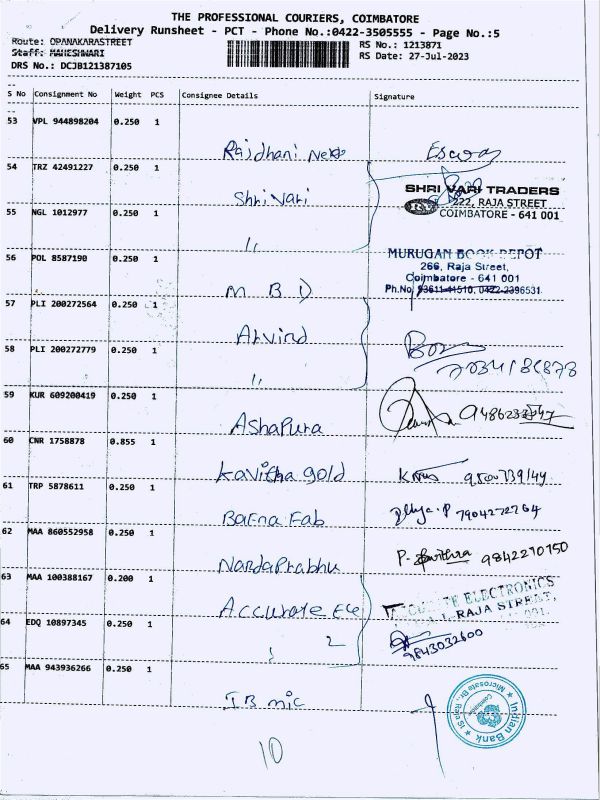 THE PROFESSIONAL COURIERS, COIMBATORE
Delivery Runsheet - PCT - Phone No.:0422-3505555 - Page No.:5
Route: OPANAKARASTREET
Staff: MAHESHWARI
DRS No.: DCJB121387105
RS No.: 1213871
RS Date: 27-Jul-2023
S No Consignment No Weight PCS Consignee Details Signature
53 VPL 944898204 0.250 1
Rajdhani
54 TRZ 42491227 0.250 1
Shri Vari
SHRI VARI TRADERS
222, RAJA STREET
COIMBATORE - 641 001
55 NGL 1012977 0.250 1
"
56 POL 8587190 0.250 1
M B D
MURUGAN BOOK DEPOT
266, Raja Street,
Coimbatore - 641 001
Ph.No. 93611-41510, 0422-2396531
57 PLI 200272564 0.250 1
Arvind
58 PLI 200272779 0.250 1
"
59 KUR 609200419 0.250 1
Ashapura
60 CNR 1758878 0.855 1
Kavitha gold
61 TRP 5878611 0.250 1
Barna Fab 7904272764
62 MAA 860552958 0.250 1
NandaPrabhu 9842210150
63 MAA 100388167 0.200 1
Accurate Ele
ELECTRONICS
RAJA STREET,
64 EDQ 10897345 0.250 1
2
9843032600
65 MAA 943936266 0.250 1
IB mic
Indian Bank
10